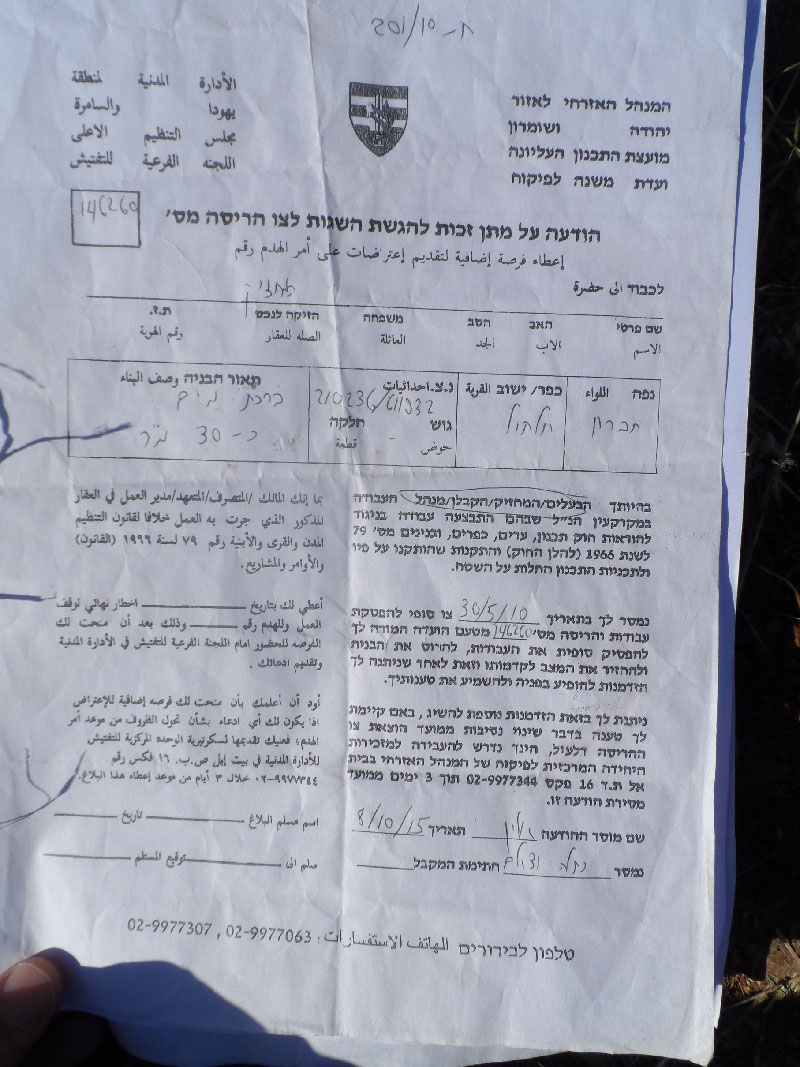 ח-201/10
המנהל האזרחי לאזור
יהודה ושומרון
מועצת התכנון העליונה
ועדת משנה לפיקוח
الأدارة المدنية لمنطقة
يهودا والسامرة
مجلس التنظيم الاعلى
اللجنه الفرعية للتفتيش
הודעה על מתן זכות להגשת השגות לצו הריסה מס'
146260
إعطاء فرصة إضافية لتقديم إعتراضات على أمر الهدم رقم
לכבוד الى حضرة
שם פרטי האב הסב משפחה הזיקה לנכס ת.ז.
الاسم الاب الجد العائلة الصله للعقار رقم الهوية
נפה اللواء כפר/ ישוב القرية נ.צ. احداثيات תאור הבניה وصف البناء
חברון חלחול 210236/611332 ברכת מים
גוש חלקה כ-30 מ"ר
حوض قطعة
בהיותך הבעלים/המחזיק/הקבלן/מנהל העבודה
במקרקעין הנ"ל שבהם התבצעה עבודה בניגוד
להוראות חוק תכנון, ערים, כפרים, ובנינים מס' 79
לשנת 1966 (להלן החוק) והתקנות שהותקנו על פיו
ולתכניות התכנון החלות על השטח.
נמסר לך בתאריך 30/5/10 צו סופי להפסקת
עבודות והריסה מס' 146260 מטעם הועדה המורה לך
להפסיק סופית את העבודות, להרוס את הבניה
ולהחזיר את המצב לקדמותו וזאת לאחר שניתנה לך
הזדמנות להופיע בפניה ולהשמיע את טענותיך.
ניתנת לך בזאת הזדמנות נוספת להשיג, באם קיימת
לך טענה בדבר שינוי נסיבות ממועד הוצאת צו
ההריסה דלעיל, הינך נדרש להעבירה למזכירות
היחידה המרכזית לפיקוח של המנהל האזרחי בבית
אל ת.ד 16 פקס 02-9977344 תוך 3 ימים ממועד
מסירת הודעה זו.
שם מוסר ההודעה תאריך 8/10/15
נמסר חתימת המקבל
بما إنك المالك /المتصرف/المتعهد/مدير العمل في العقار
المذكور الذي جرت به العمل خلافا لقانون التنظيم
المدن والقرى والأبنية رقم ٧٩ لسنة ١٩٦٦ (القانون)
والأوامر والمشاريع.
أعطي لك بتاريخ اخطار نهائي لوقف
العمل وللهدم رقم وذلك بعد أن منحت لك
الفرصه للحضور امام اللجنة الفرعية للتفتيش في الأدارة المدنية
وتقديم ادعائك.
أود أن أعلمك بأن منحت لك فرصه إضافية للإعتراض
اذا يكون لك أي ادعاء بشأن تحول الظروف من موعد أمر
الهدم، فعليك تقديمها لسكرتيرية الوحده المركزية للتفتيش
للأدارة المدنية في بيت إيل ص.ب. ١٦ فكس رقم
٠٢-٩٩٧٧٣٤٤ خلال ٣ أيام من موعد إعطاء هذا البلاغ.
اسم مسلم البلاغ تاريخ
سلم الى توقيع المستلم
טלפון לבירורים الهاتف الاستفسارات: 02-9977063 , 02-9977307